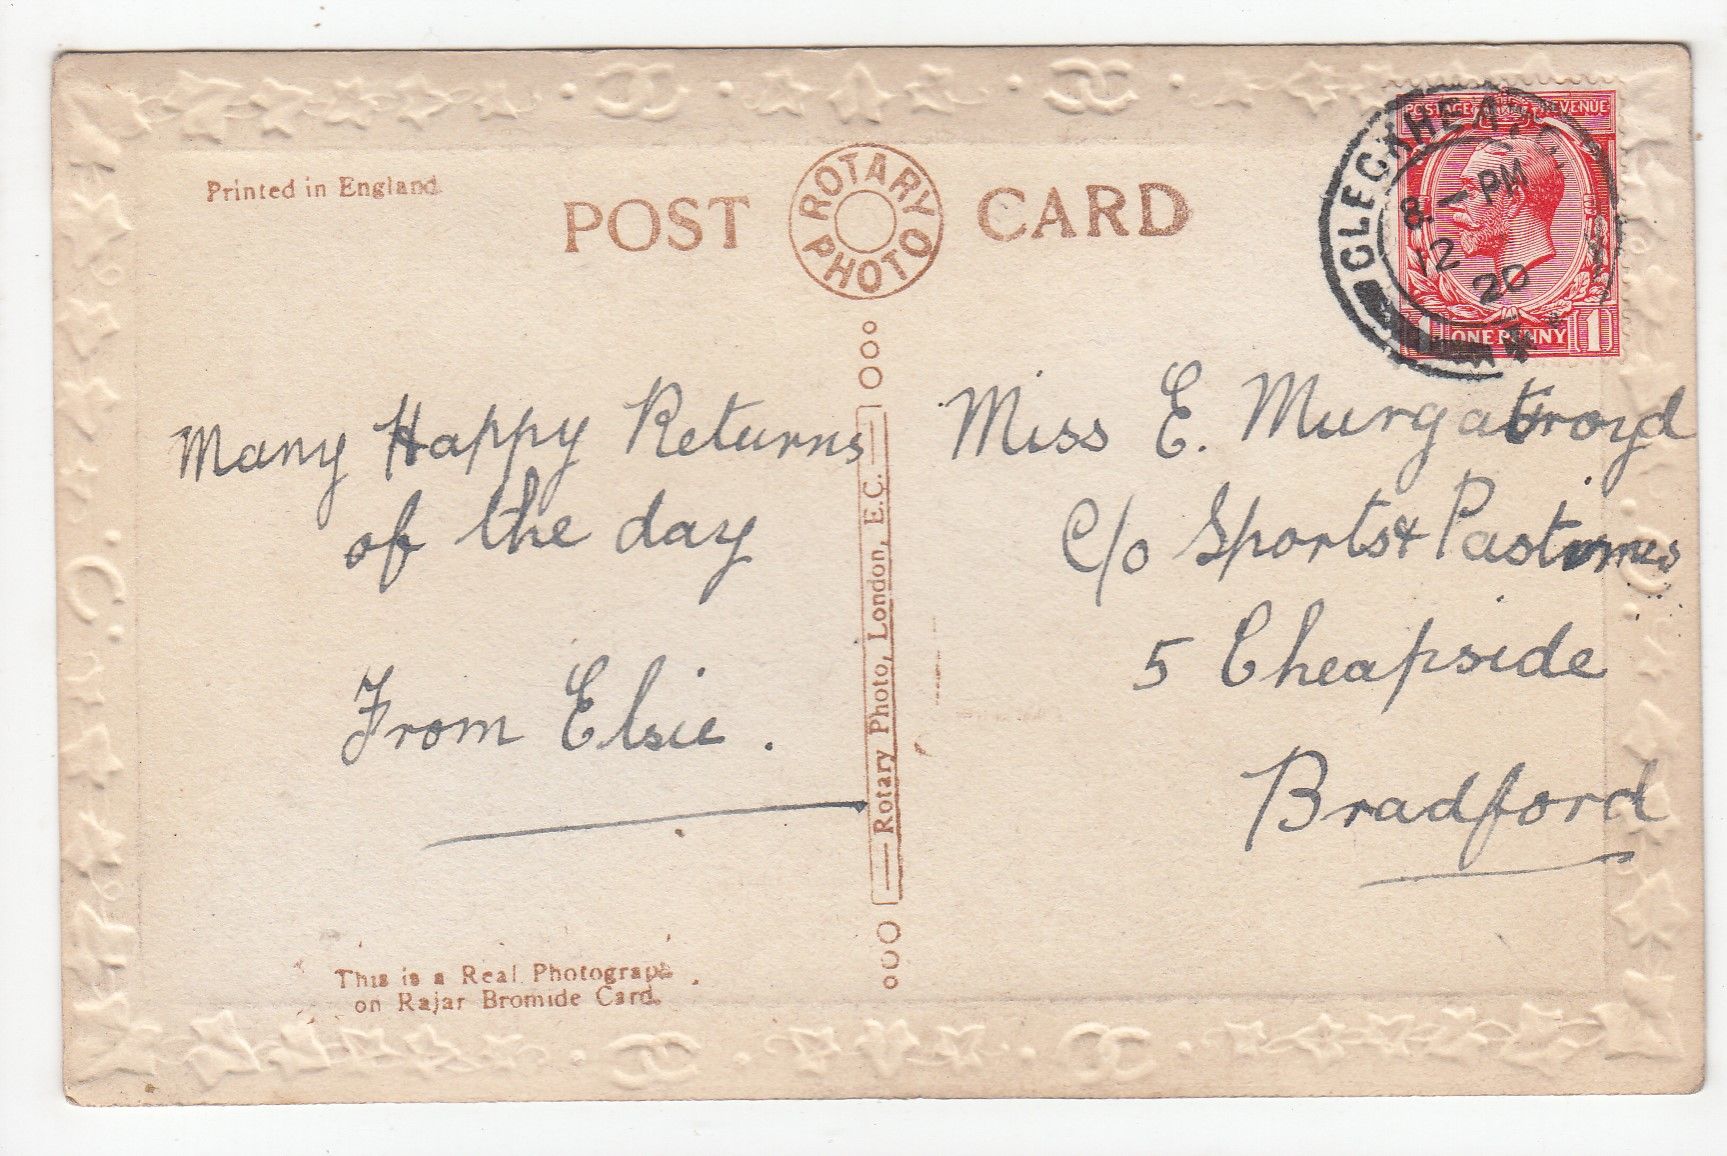 Printed in England
POST CARD
ROTARY PHOTO
POSTAGE REVENUE
CLECKHEATON
8 - PM
12
20
1 ONE PENNY 1
Many Happy Returns
of the day
From Elsie.
Rotary Photo, London, E.C.
Miss E. Murgatroyd
C/o Sports & Pastimes
5 Cheapside
Bradford
This is a Real Photograph
on Rajar Bromide Card.